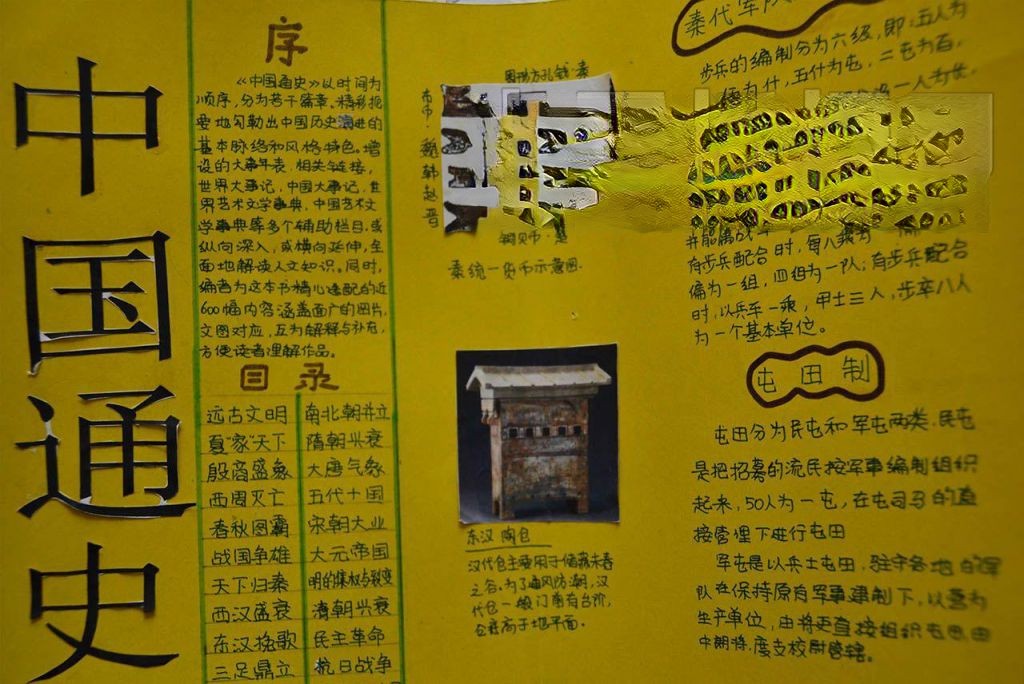 中国通史
序
《中国通史》以时间为
顺序，分为若干篇章，精彩扼
要地勾勒出中国历史演进的
基本脉络和风格特色。增
设的大事年表，相关链接，
世界大事记，中国大事记，世
界艺术文学事典，中国艺术文
学事典等多个辅助栏目，或
纵向深入，或横向延伸，全
面地解读人文知识。同时，
编者为这本书精心选配的近
600幅内容涵盖面广的图片，
文图对应，互为解释与补充，
方便读者理解作品。
目录
远古文明 南北朝并立
夏"家"天下 隋朝兴衰
殷商盛象 大唐气象
西周灭亡 五代十国
春秋图霸 宋朝大业
战国争雄 大元帝国
天下归秦 明的集权与裂变
西汉盛衰 清朝兴衰
东汉挽歌 民主革命
三足鼎立 抗日战争
圆形方孔钱·秦
布币·魏韩赵晋
铜贝币·楚
秦统一货币示意图
东汉 陶仓
汉代仓主要用于储藏未舂
之谷。为了通风防潮，汉
代仓一般门前有台阶，
仓底高于地平面。
秦代军队
步兵的编制分为六级，即：五人为
伍，二伍为什，五什为屯，二屯为百，
一人为长，
有步兵配合时，每八乘为
偏为一组，四组为一队；有步兵配合
时，以兵车一乘，甲士三人，步卒八人
为一个基本单位。
屯田制
屯田分为民屯和军屯两类，民屯
是把招募的流民按军事编制组织
起来，50人为一屯，在屯司马的直
接管理下进行屯田
军屯是以兵士屯田，驻守各地的军
队在保持原有军事建制下，以营为
生产单位，由将吏直接组织屯田由
中朝将、度支校尉管辖。